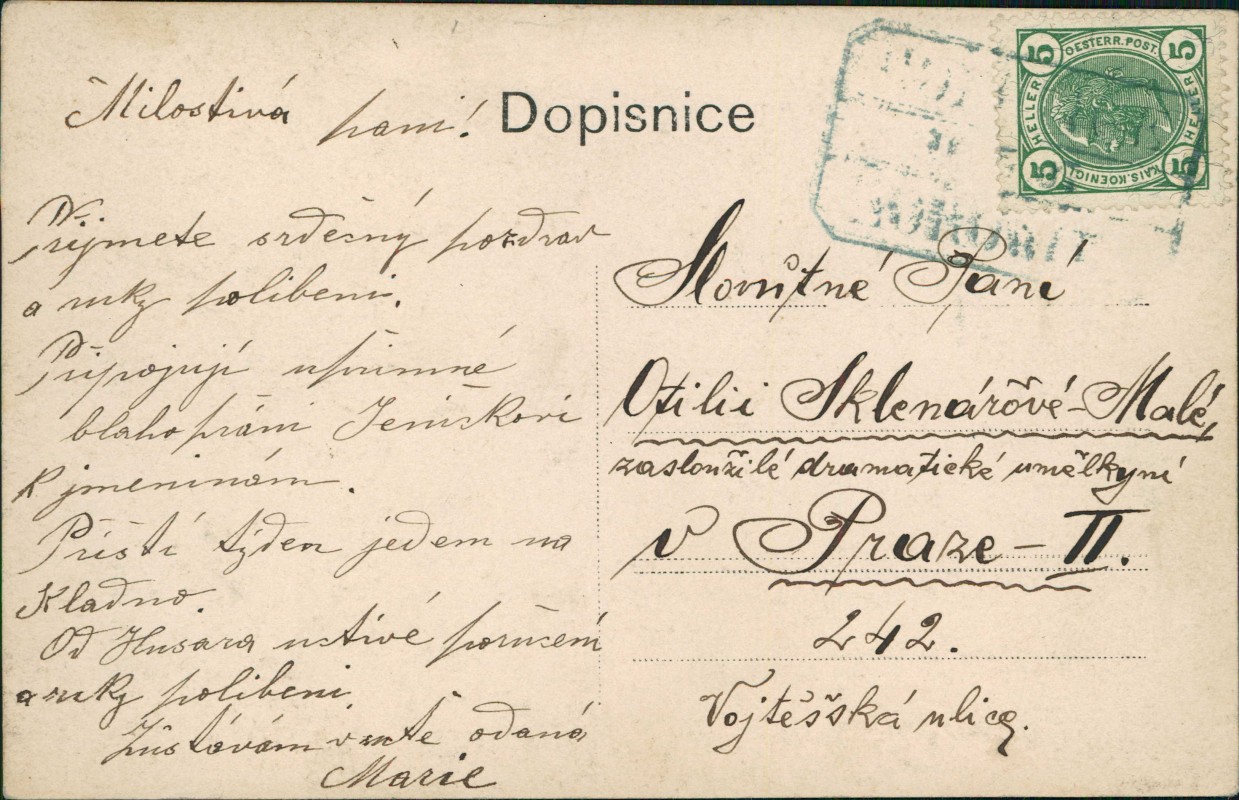 Milostivá paní!
Dopisnice
Přijmete srdečný pozdrav
a ruky polibeni.
Připojuji upřimné
blahopráni Jeniskovi
k jmeninám.
Přistí týden jedem na
Kladno.
Od Husara uctivé poručení
a ruky polibeni.
Zůstávám v uctě odaná
Marie
5 OESTERR. POST. 5
HELLER HELLER
5 KAIS. KOENIGL. 5
Slovůtné Paní
Otilii Sklenářové-Malé,
zasloužilé dramatické umělkyni
v Praze-II.
242.
Vojtěšská ulice.